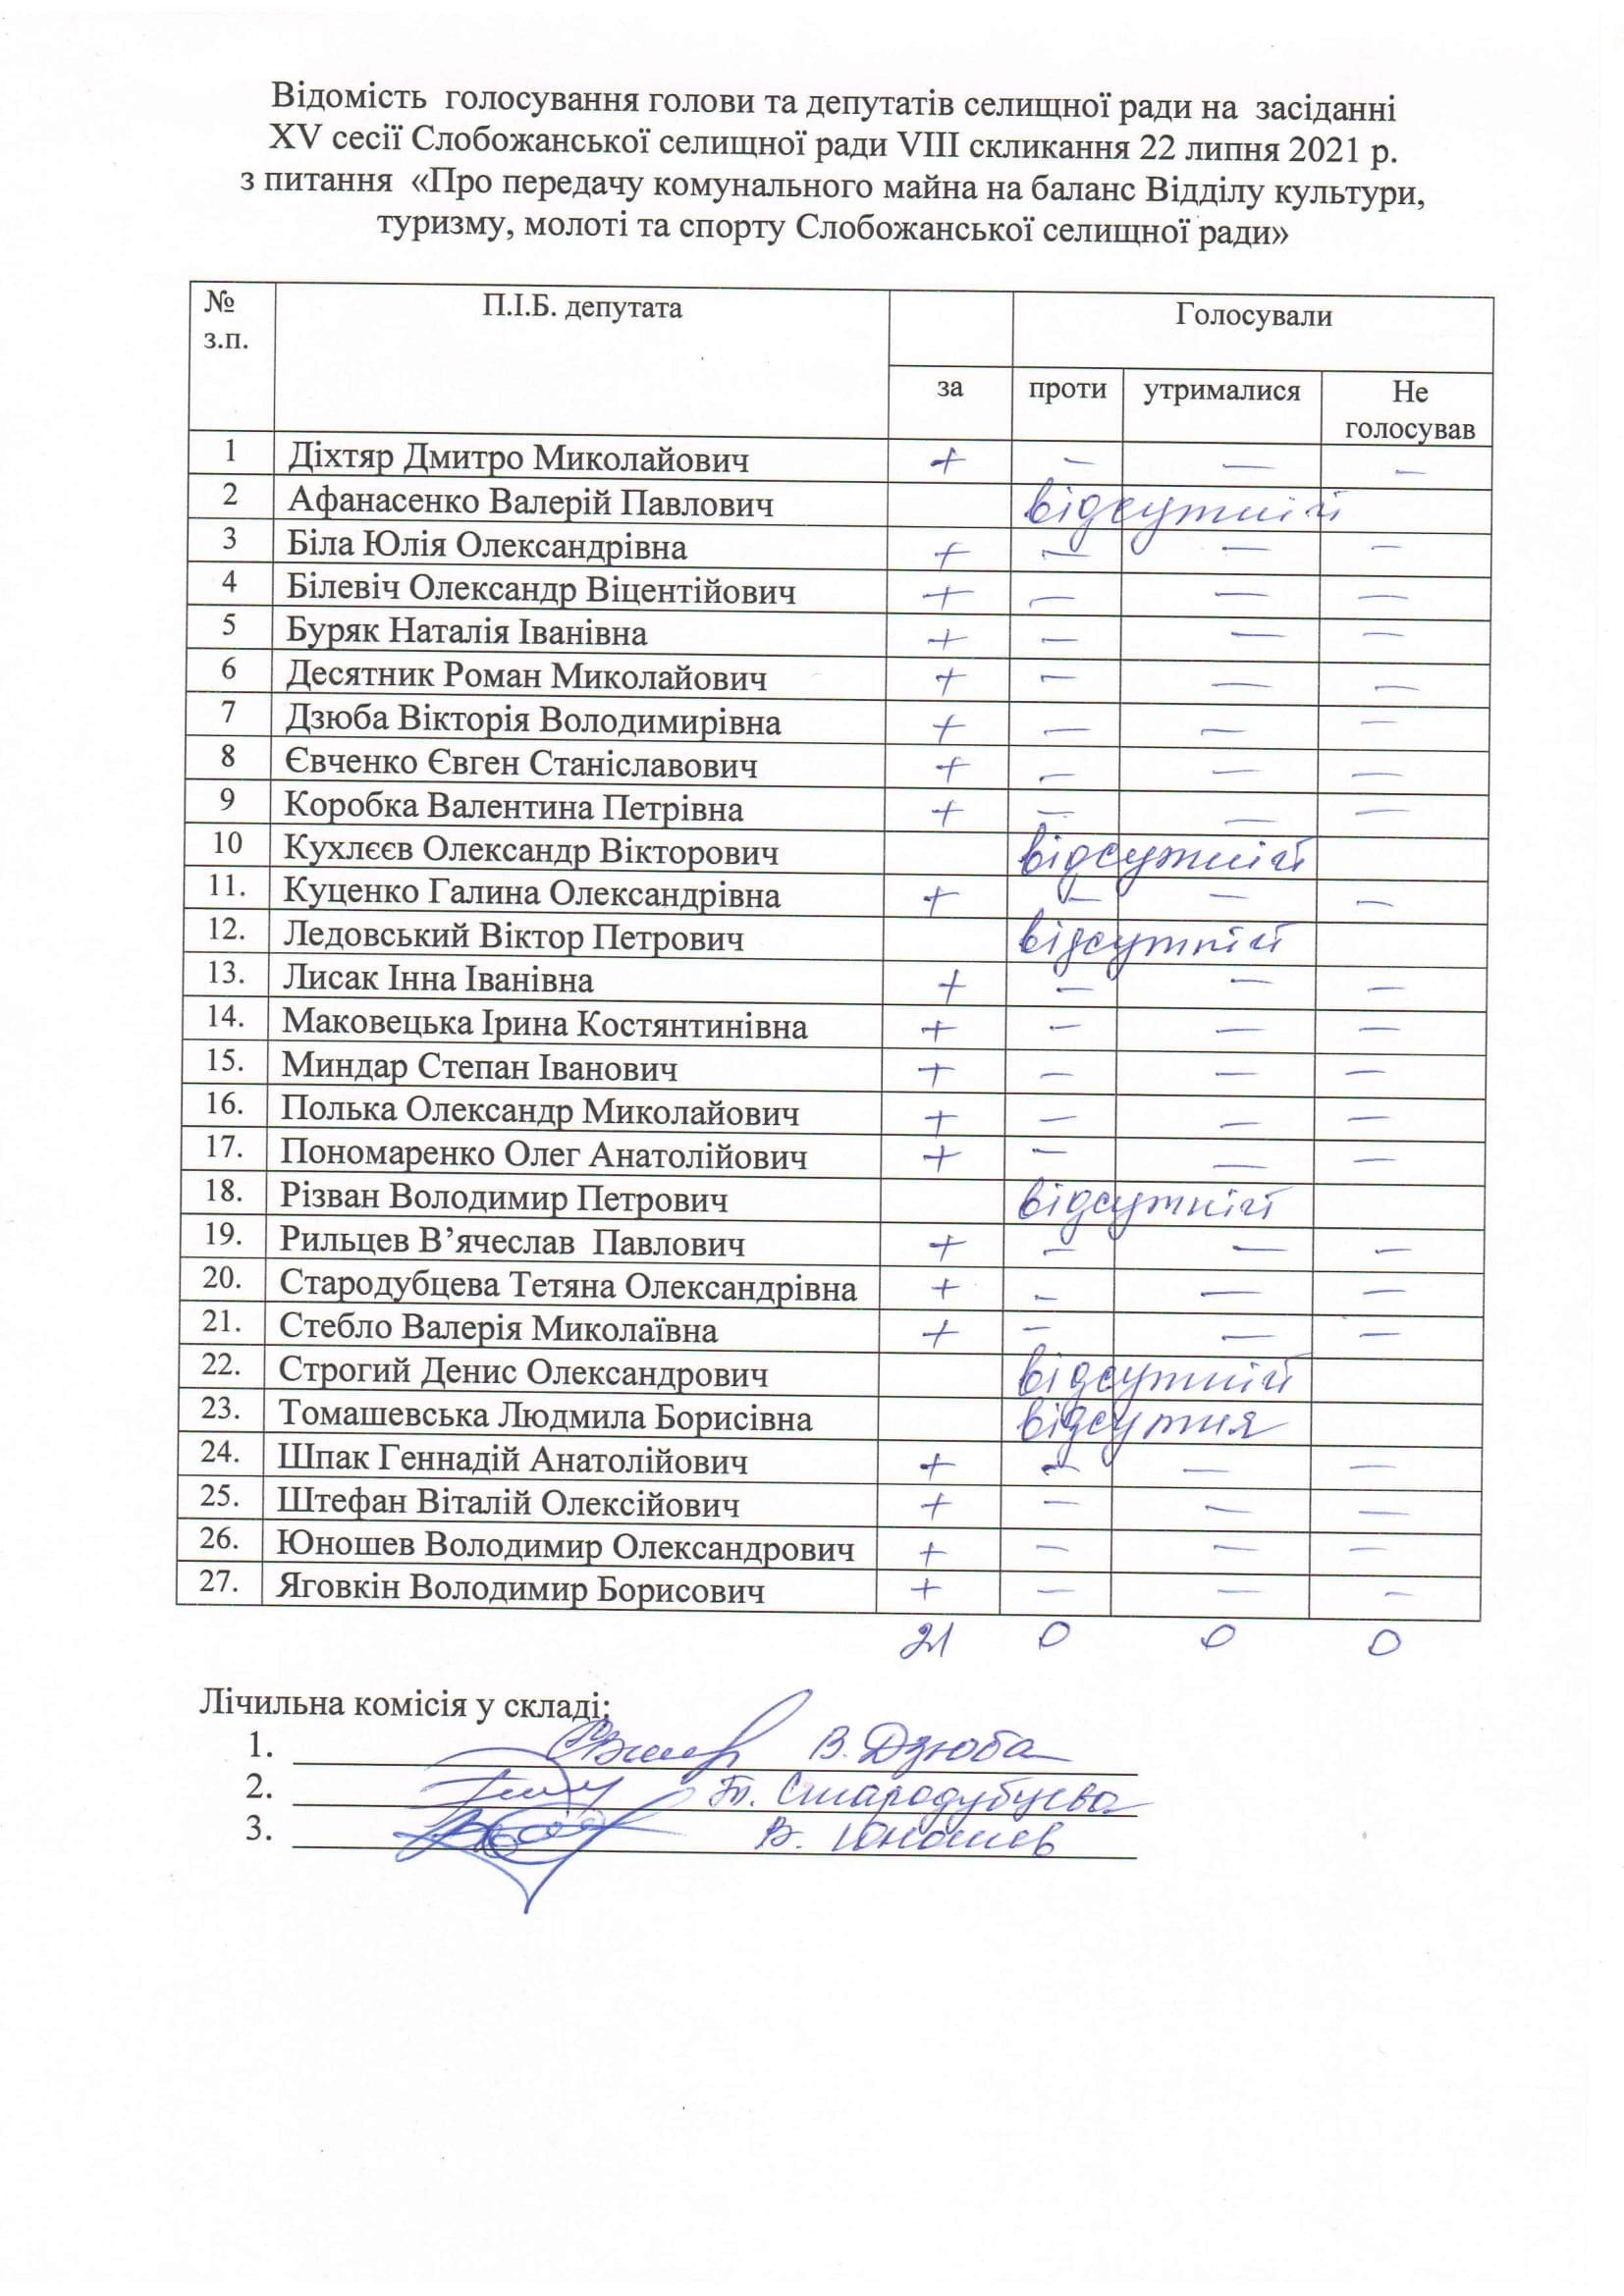 Відомість голосування голови та депутатів селищної ради на засіданні
XV сесії Слобожанської селищної ради VIII скликання 22 липня 2021 р.
з питання «Про передачу комунального майна на баланс Відділу культури,
туризму, молоті та спорту Слобожанської селищної ради»
№ з.п. П.І.Б. депутата Голосували
за проти утрималися Не голосував
1 Діхтяр Дмитро Миколайович + – – –
2 Афанасенко Валерій Павлович відсутній
3 Біла Юлія Олександрівна + – – –
4 Білевіч Олександр Віцентійович + – – –
5 Буряк Наталія Іванівна + – – –
6 Десятник Роман Миколайович + – – –
7 Дзюба Вікторія Володимирівна + – – –
8 Євченко Євген Станіславович + – – –
9 Коробка Валентина Петрівна + – – –
10 Кухлєєв Олександр Вікторович відсутній
11. Куценко Галина Олександрівна + – – –
12. Ледовський Віктор Петрович відсутній
13. Лисак Інна Іванівна + – – –
14. Маковецька Ірина Костянтинівна + – – –
15. Миндар Степан Іванович + – – –
16. Полька Олександр Миколайович + – – –
17. Пономаренко Олег Анатолійович + – – –
18. Різван Володимир Петрович відсутній
19. Рильцев В’ячеслав Павлович + – – –
20. Стародубцева Тетяна Олександрівна + – – –
21. Стебло Валерія Миколаївна + – – –
22. Строгий Денис Олександрович відсутній
23. Томашевська Людмила Борисівна відсутня
24. Шпак Геннадій Анатолійович + – – –
25. Штефан Віталій Олексійович + – – –
26. Юношев Володимир Олександрович + – – –
27. Яговкін Володимир Борисович + – – –
21 0 0 0
Лічильна комісія у складі:
1. В. Дзюба
2. Т. Стародубцева
3. В. Юношев